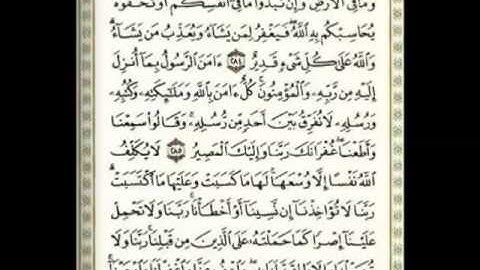 وَمَا فِي ٱلۡأَرۡضِۗ وَإِن تُبۡدُواْ مَا فِيٓ أَنفُسِكُمۡ أَوۡ تُخۡفُوهُ
يُحَاسِبۡكُم بِهِ ٱللَّهُۖ فَيَغۡفِرُ لِمَن يَشَآءُ وَيُعَذِّبُ مَن يَشَآءُۗ
وَٱللَّهُ عَلَىٰ كُلِّ شَيۡءٖ قَدِيرٌ ٢٨٤ ءَامَنَ ٱلرَّسُولُ بِمَآ أُنزِلَ
إِلَيۡهِ مِن رَّبِّهِۦ وَٱلۡمُؤۡمِنُونَۚ كُلٌّ ءَامَنَ بِٱللَّهِ وَمَلَـٰٓئِكَتِهِۦ وَكُتُبِهِۦ
وَرُسُلِهِۦ لَا نُفَرِّقُ بَيۡنَ أَحَدٖ مِّن رُّسُلِهِۦۚ وَقَالُواْ سَمِعۡنَا
وَأَطَعۡنَاۖ غُفۡرَانَكَ رَبَّنَا وَإِلَيۡكَ ٱلۡمَصِيرُ ٢٨٥ لَا يُكَلِّفُ
ٱللَّهُ نَفۡسًا إِلَّا وُسۡعَهَاۚ لَهَا مَا كَسَبَتۡ وَعَلَيۡهَا مَا ٱكۡتَسَبَتۡۗ
رَبَّنَا لَا تُؤَاخِذۡنَآ إِن نَّسِينَآ أَوۡ أَخۡطَأۡنَاۚ رَبَّنَا وَلَا تَحۡمِلۡ
عَلَيۡنَآ إِصۡرٗا كَمَا حَمَلۡتَهُۥ عَلَى ٱلَّذِينَ مِن قَبۡلِنَاۚ رَبَّنَا وَلَا